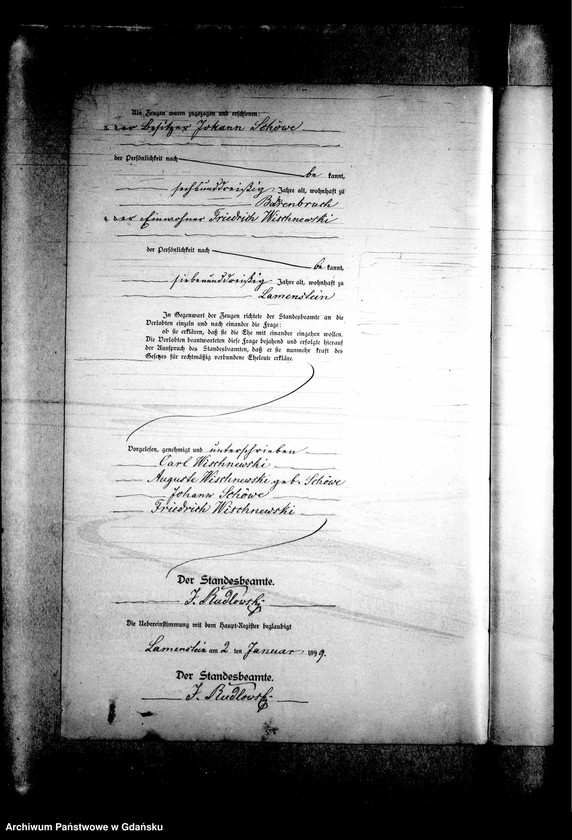 Als Zeugen waren zugezogen und erschienen:
der Besitzer Johann Schöwe
der Persönlichkeit nach
be kannt,
sechsunddreißig Jahre alt, wohnhaft zu
der Einwohner Friedrich Wischnewski
der Persönlichkeit nach
be kannt,
siebenunddreißig Jahre alt, wohnhaft zu
Lamenstein
In Gegenwart der Zeugen richtete der Standesbeamte an die
Verlobten einzeln und nach einander die Frage:
ob sie erklären, daß sie die Ehe mit einander eingehen wollen.
Die Verlobten beantworteten diese Frage bejahend und erfolgte hierauf
der Ausspruch des Standesbeamten, daß er sie nunmehr kraft des
Gesetzes für rechtmäßig verbundene Eheleute erkläre.
Vorgelesen, genehmigt und unterschrieben
Carl Wischnewski
Auguste Wischnewski geb. Schöwe
Johann Schöwe
Friedrich Wischnewski
Der Standesbeamte.
J. Rudlowski
Die Uebereinstimmung mit dem Haupt-Register beglaubigt
Lamenstein am 2 ten Januar 1899.
Der Standesbeamte.
J. Rudlowski
Archiwum Państwowe w Gdańsku